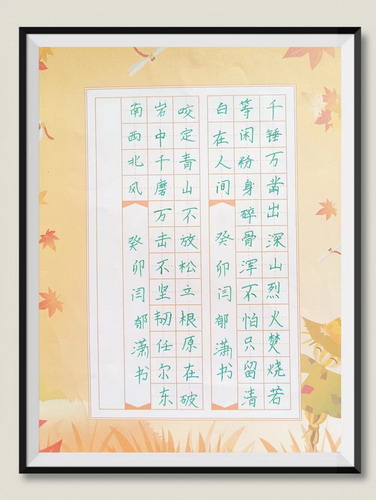 千锤万凿出深山烈火焚烧若
等闲粉身碎骨浑不怕只留清
白在人间 癸卯闫郁潇书
咬定青山不放松立根原在破
岩中千磨万击不坚韧任尔东
南西北风 癸卯闫郁潇书